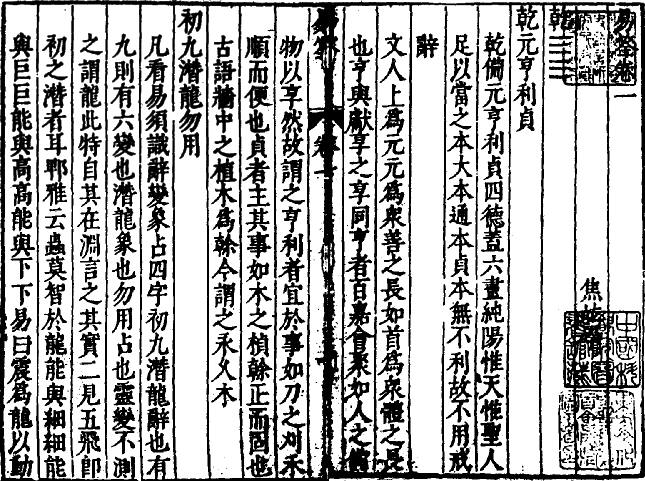 易筌卷一
焦竑
乾
乾元亨利貞
乾備元亨利貞四德蓋六畫純陽惟天惟聖人
足以當之本大本通本貞本無不利故不用戒
辭
文人上為元元為眾善之長如首為眾體之長
也亨與獻享之享同亨者百嘉會聚如人之
物以享然故謂之亨利者宜於事如刀之刈禾
順而便也貞者主其事如木之楨榦正而固也
古語牆中之植木為榦今謂之永久本
初九潛龍勿用
凡看易須識辭變象占四字初九潛龍辭也有
九則有六變也潛龍象也勿用占也靈變不測
之謂龍此特自其在淵言之其實二見五飛即
初之潛者耳鄆雅云蟲莫智於龍能與細細能
與巨巨能與高高能與下下易曰震為龍以動